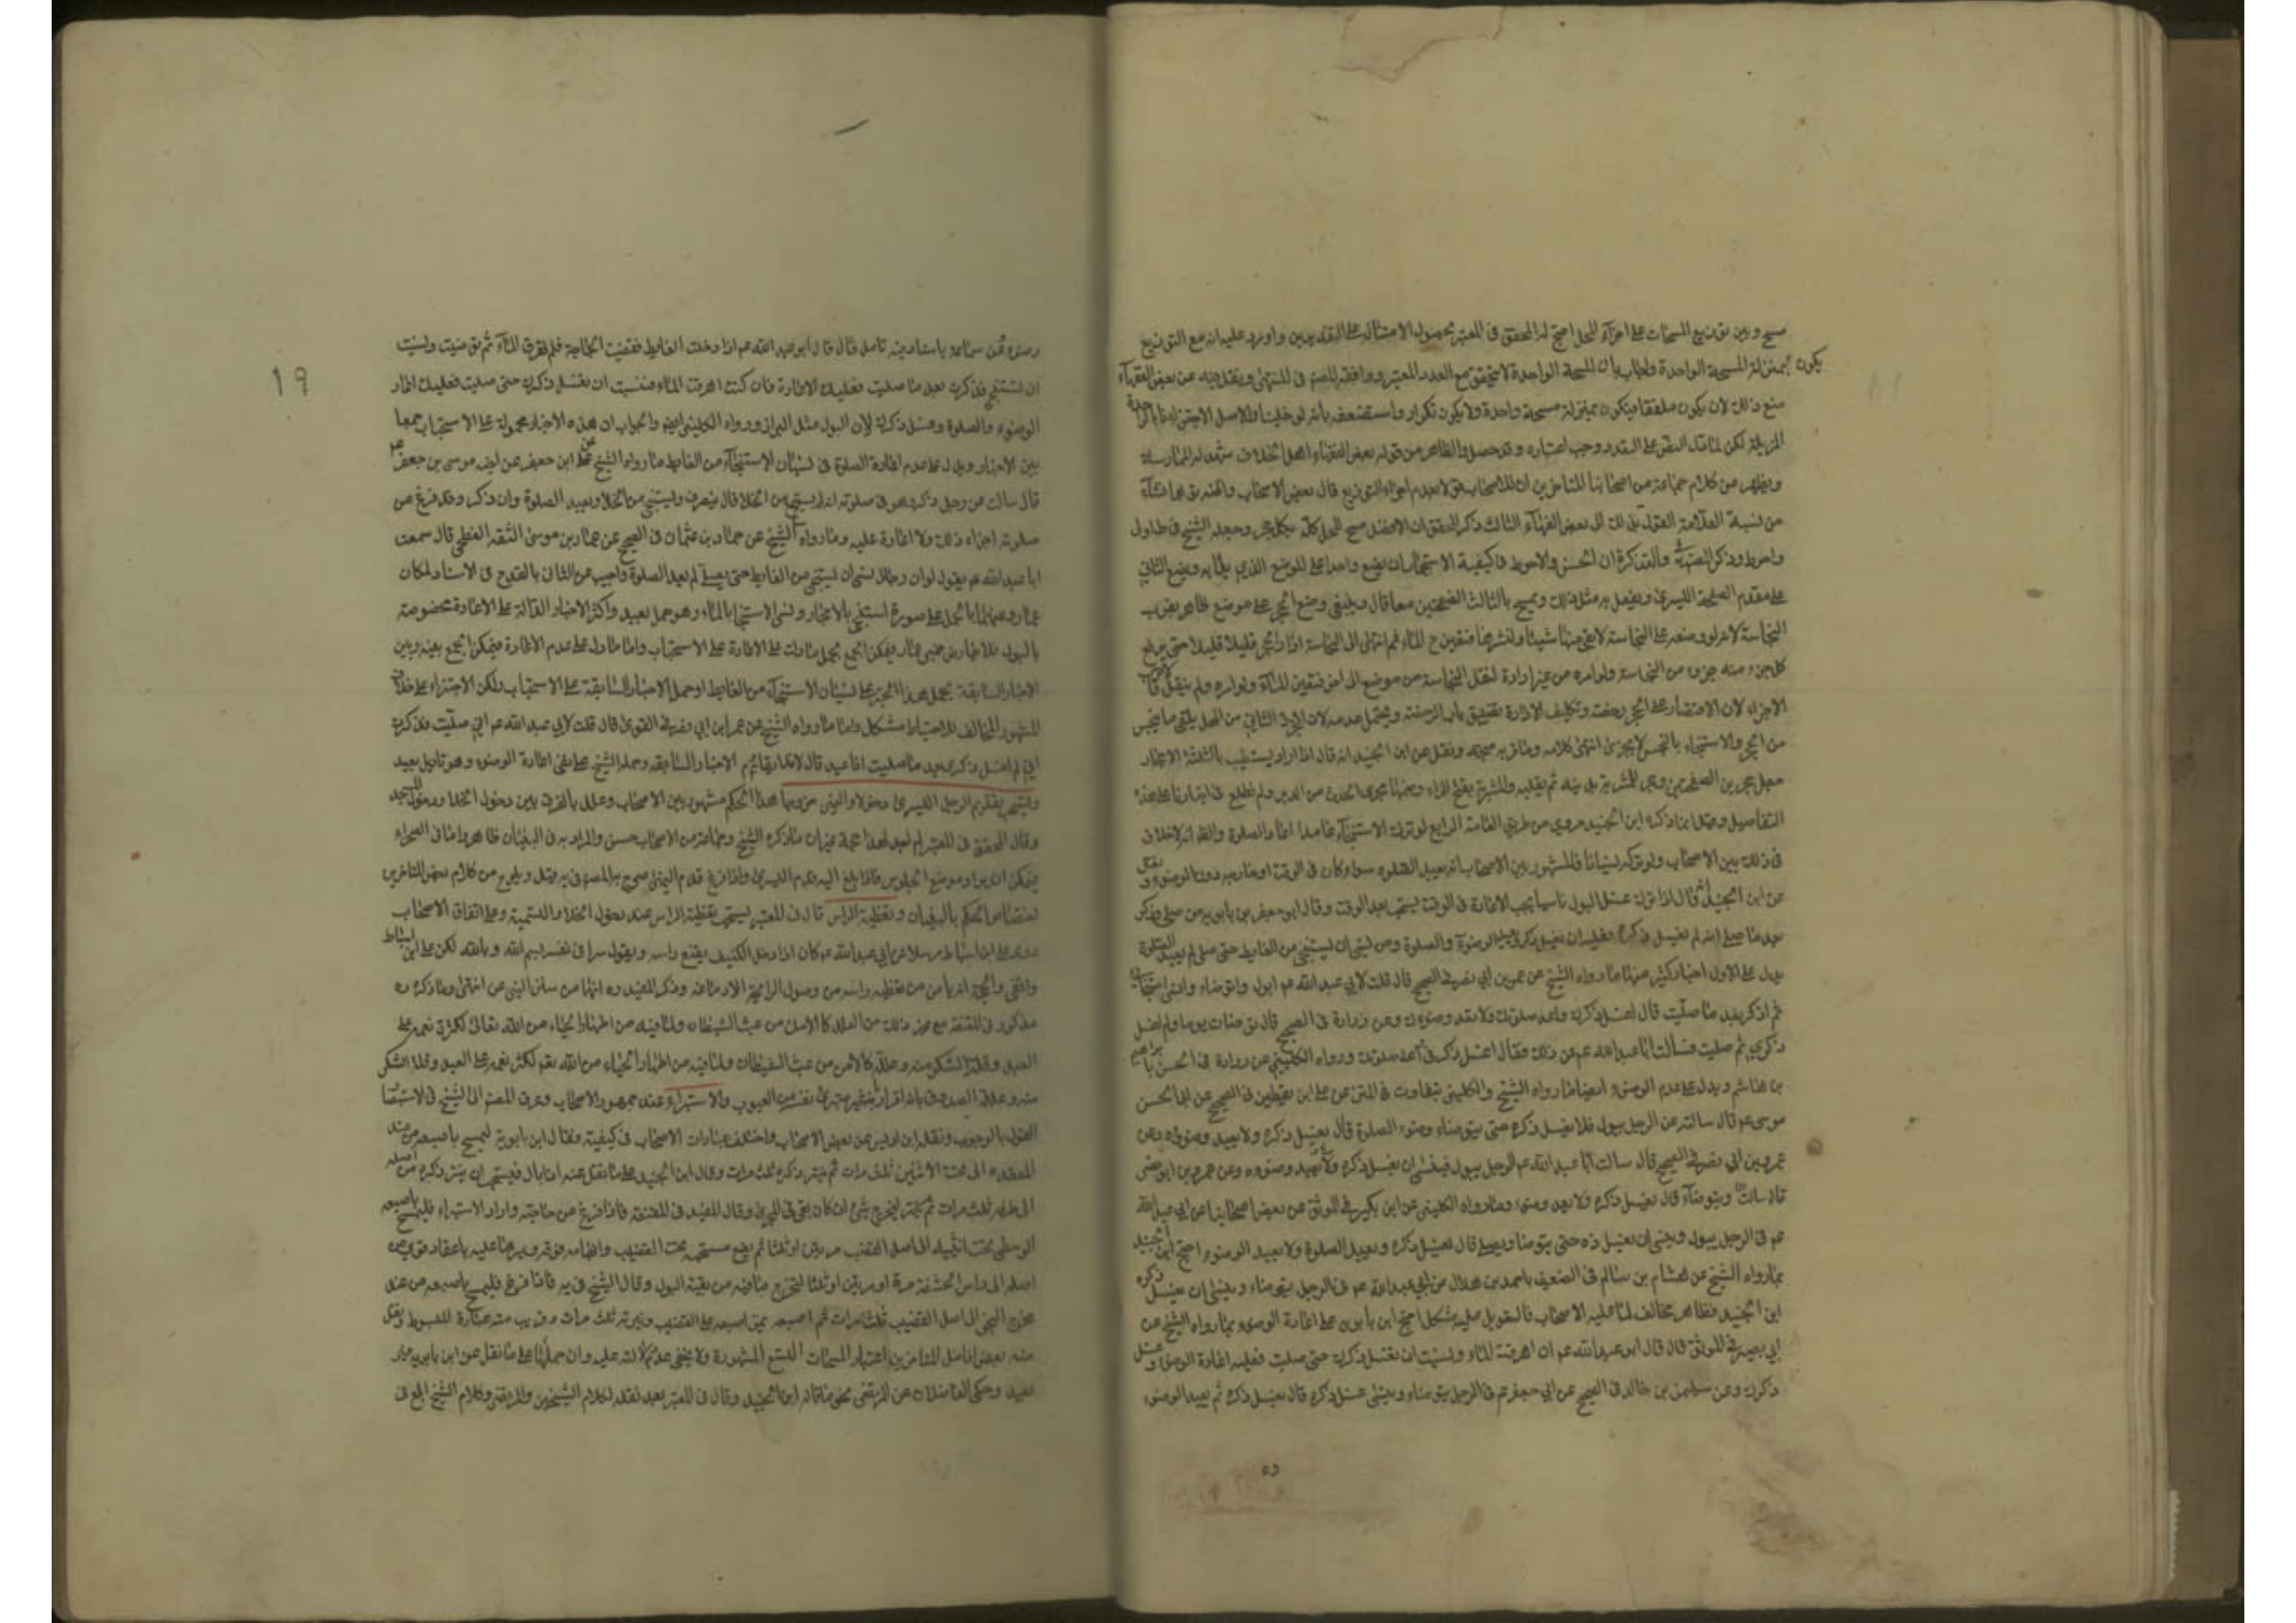 مسح وبين توزيع المسحات على اجزاء المحل احتج له المحقق في المعتبر بحصول الامتثال على التقديرين واورد عليه انه مع التوزيع
يكون بمنزلة المسحة الواحدة واجاب بان المسحة الواحدة لا يتحقق مع العدد المعتبر ووافقه المصنف في المنتهى ونقل فيه عن بعض الفقهاء
منع ذلك لانه يكون ملفقا فيكون بمنزلة مسحة واحدة ولا يكون تكرار واستضعفه بانه لو خلينا والاصل لاجتزانا بالواحدة
المزيلة لكن لما دل النص على العدد وجب اعتباره وقد حصل والظاهر من قوله بعض الفقهاء اهل الخلاف
ويظهر من كلام جماعة من اصحابنا المتاخرين ان للاصحاب قولا بعدم اجزاء التوزيع قال بعض الاصحاب
من نسبة العلامة القول بذلك الى بعض الفقهاء الثالث ذكر المحقق ان الافضل مسح المحل كله بكل حجر وجعله الشيخ في ط اولى
واحوط وذكر المصنف في والتذكرة ان الاحسن والاحوط في كيفية الاستجمار ان يضع واحدا على الموضع الذي يليه ويضع الثاني
على مقدم الصفحة اليسرى ويفعل به مثل ذلك ويمسح بالثالث الصفحتين معا قال وينبغي وضع الحجر على موضع طاهر بقرب
النجاسة لانه لو وضعه على النجاسة لابقى منها شيئا ولنشرها فتعين ح الماء ثم انتهى الى النجاسة ادار الحجر قليلا قليلا حتى يرفع
كل جزء منه جزء من النجاسة ولو امره من غير ادارة لنقل النجاسة من موضع الى اخر فتعين الماء ولو امره ولم ينقل فالاقرب
الاجزاء لان الاقتصار على الحجر رخصة وتكليف الادارة يضيق باب الرخصة ويحتمل عدمه لان الجزء الثاني من المحل يلقى ما ينجس
من الحجر والاستنجاء بالنجس لا يجزي انتهى كلامه ونقل عن ابن الجنيد انه قال اذا اراد يستطيب بالثلثة الاحجار
جعل حجرين الصفحتين وحجر المشربة ثم يقلبه والمشربة بفتح الراء وضمها مجرى الحدث من الدبر ولم نطلع في اخبارنا على هذه
التفاصيل ومثل ما ذكره ابن الجنيد مروي من طريق العامة الرابع لو ترك الاستنجاء عامدا اعاد الصلوة والظاهر انه لا خلاف
في ذلك بين الاصحاب ولو تركه نسيانا فالمشهور بين الاصحاب انه يعيد الصلوة سواء كان في الوقت او خارجه دون الوضوء ونقل
عن ابن الجنيد انه قال اذا ترك غسل البول ناسيا يجب الاعادة في الوقت يستحب بعد الوقت وقال ابو جعفر بن بابويه من صلى وذكر
بعد ما صلى انه لم يغسل ذكره فعليه ان يغسل ذكره ويعيد الوضوء والصلوة ومن نسي ان يستنجي من الغايط حتى صلى لم يعد الصلوة
يدل على الاول اخبار كثيرة منها ما رواه الشيخ عن عمرو بن ابي نصر في الصحيح قال قلت لابي عبد الله عم ابول واتوضاء وانسى استنجائي
ثم اذكر بعد ما صليت قال اغسل ذكرك واعد صلوتك ولا تعد وضوءك وعن زرارة في الصحيح قال توضات يوما ولم اغسل
ذكري ثم صليت فسالت ابا عبد الله عم عن ذلك فقال اغسل ذكرك واعد صلوتك ورواه الكليني عن زرارة في الحسن بابراهيم
بن هاشم ويدل على عدم الوضوء ايضا ما رواه الشيخ والكليني بتفاوت في المتن عن علي ابن يقطين في الصحيح عن ابي الحسن
موسى عم قال سالته عن الرجل يبول فلا يغسل ذكره حتى يتوضاء وضوء الصلوة قال يغسل ذكره ولا يعيد وضوءه وعن
عمرو بن ابي نصر في الصحيح قال سالت ابا عبد الله عم الرجل يبول فينسى ان يغسل ذكره ولا يعيد وضوءه وعن عمرو بن ابي نصر
قال يغسل ذكره ولا يعيد وضوءه وما رواه الكليني عن ابن بكير في الموثق عن بعض اصحابنا عن ابي عبد الله
عم في الرجل يبول وينسى ان يغسل ذكره حتى يتوضا ويصلي قال يغسل ذكره ويعيد الصلوة ولا يعيد الوضوء احتج ابن الجنيد
بما رواه الشيخ عن هشام بن سالم في الضعيف باحمد بن هلال عن ابي عبد الله عم في الرجل يتوضاء وينسى ان يغسل ذكره
ابن الجنيد فظاهره مخالف لما عليه الاصحاب فالتعويل عليه مشكل احتج ابن بابويه على اعادة الوضوء بما رواه الشيخ عن
ابي بصير في الموثق قال قال ابو عبد الله عم ان اهرقت الماء ونسيت ان تغسل ذكرك حتى صليت فعليك اعادة الوضوء وغسل
ذكرك وعن سليمن بن خالد في الصحيح عن ابي جعفر عم في الرجل يتوضاء وينسى غسل ذكره قال يغسل ذكره ثم يعيد الوضوء
19
وعن سماعة باسناد فيه تامل قال قال ابو عبد الله عم اذا دخلت الغايط فقضيت الحاجة فلم تهرق الماء ثم توضيت ونسيت
ان تستنجي فذكرت بعد ما صليت فعليك الاعادة فان كنت اهرقت الماء فنسيت ان تغسل ذكرك حتى صليت فعليك اعادة
الوضوء والصلوة وغسل ذكرك لان البول مثل البراز ورواه الكليني ايضا والجواب ان هذه الاخبار محمولة على الاستحباب جمعا
بين الاخبار ويدل على عدم اعادة الصلوة في نسيان الاستنجاء من الغايط ما رواه الشيخ عن علي ابن جعفر عن اخيه موسى بن جعفر عم
قال سالت عن رجل ذكر وهو في صلوته انه لم يستنج من الخلا قال ينصرف ويستنجي من الخلا ويعيد الصلوة وان ذكر وقد فرغ من
صلوته اجزاءه ذلك ولا اعادة عليه وما رواه الشيخ عن حماد بن عثمان في الصحيح عن عمار بن موسى الثقة الفطحي قال سمعت
ابا عبد الله عم يقول لو ان رجلا نسي ان يستنجي من الغايط حتى يصلي لم يعد الصلوة واجيب عن الثاني بالقدح في الاسناد لمكان
عمار وعنهما بالحمل على صورة استنجى بالاحجار ونسي الاستنجا بالماء وهو حمل بعيد واكثر الاخبار الدالة على الاعادة مخصوصة
بالبول فيمكن الجمع بحمل ما دل على الاعادة على الاستحباب واما ما دل على عدم الاعادة فيمكن الجمع بينه وبين
الاخبار السابقة بحمل هذا الخبر على نسيان الاستنجاء من الغايط او حمل الاخبار السابقة على الاستحباب ولكن الاجتزاء على خلاف
المشهور المخالف للاحتياط مشكل واما ما رواه الشيخ عن عمر ابن ابي نصر في القوي قال قلت لابي عبد الله عم اني صليت فذكرت
اني لم اغسل ذكري بعد ما صليت افاعيد قال لا الاخبار السابقة وحمله الشيخ على نفي اعادة الوضوء وهو تاويل بعيد
ويستحب تقديم الرجل اليسرى دخولا واليمنى خروجا هذا الحكم مشهور بين الاصحاب وعلل بالفرق بين دخول الخلا ودخول المسجد
وقال المحقق في المعتبر لم اجد لهذا حجة غير ان ما ذكره الشيخ وجماعة من الاصحاب حسن والمراد به في البنيان ظاهر واما في الصحراء
فيمكن ان يراد موضع الجلوس فاذا بلغ اليه قدم اليسرى واذا فرغ قدم اليمنى صرح به المصنف في يه وقيل ويلوح من كلام بعض المتاخرين
اختصاص الحكم بالبنيان وتغطية الراس قال في المعتبر يستحب تغطية الراس عند دخول الخلا والتسمية وعليه اتفاق الاصحاب
روى علي ابن اسباط مرسلا عن ابي عبد الله عم كان اذا دخل الكنيف يقنع راسه ويقول سرا في نفسه بسم الله وبالله لكن علي ابن اسباط
واقفي والحجة انه يامن من تغطية راسه من وصول الرايحة الى دماغه وذكر المفيد ره انها من سنن النبي ص انتهى وما ذكره ره
مذكور في المقنعة مع غير ذلك من العلل كالامن من عبث الشيطان ولما فيه من اظهار الحياء من الله تعالى لكثرة نعمه على
العبد وقلة الشكر منه وعلل كالامن من عبث الشيطان ولما فيه من اظهار الحياء من الله تعالى لكثرة نعمه على العبد وقلة الشكر
منه وعلل الصدوق بانه اقرار بانه غير مبرئ نفسه من العيوب والاستبراء عند جمهور الاصحاب وعزى المصنف الى الشيخ في الاستبصار
القول بالوجوب ونقله ابن ادريس عن بعض الاصحاب واختلف عبارات الاصحاب في كيفيته فقال ابن بابويه ليمسح باصبعه من عند
المقعدة الى الانثيين ثلث مرات ثم ينتر ذكره ثلث مرات وقال ابن الجنيد على ما نقل عنه اذا بال فيستحب ان ينتر ذكره من اصله
الى طرفه ثلث مرات ليخرج شئ ان كان بقي في المجرى وقال المفيد في المقنعة فاذا فرغ من حاجته واراد الاستبراء فليمسح باصبعه
الوسطى تحت انثييه الى اصل القضيب مرتين او ثلثا ثم يضع مسبحته تحت القضيب وابهامه فوقه ويمرهما عليه باعتماد قوي من
اصله الى راس الحشفة مرة او مرتين او ثلثا ليخرج ما فيه من بقية البول وقال الشيخ في يه فاذا فرغ فليمسح باصبعه من عند
مخرج النجو الى اصل القضيب ثلث مرات ثم يمر اصبعه على القضيب وينتره ثلث مرات وقريب منه عبارة المبسوط ونقل
منه بعض افاضل المتاخرين اعتبار المسحات التسع المشهورة ولا يخفى عدم دلالته عليه وان حملها على ما نقل عن ابن بابويه
بعيد وحكى الفاضلان عن المرتضى نحو ما قاله ابن الجنيد وقال في المعتبر بعد نقله لكلام الشيخين والمرتضى وكلام الشيخ ابلغ في